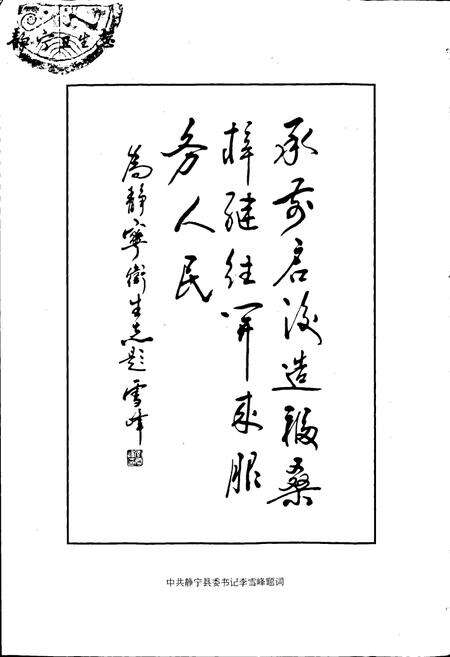 静宁卫生志
承前启後造福桑
梓继往开来服
务人民
為静寧衛生志题 雪峰
中共静宁县委书记李雪峰题词